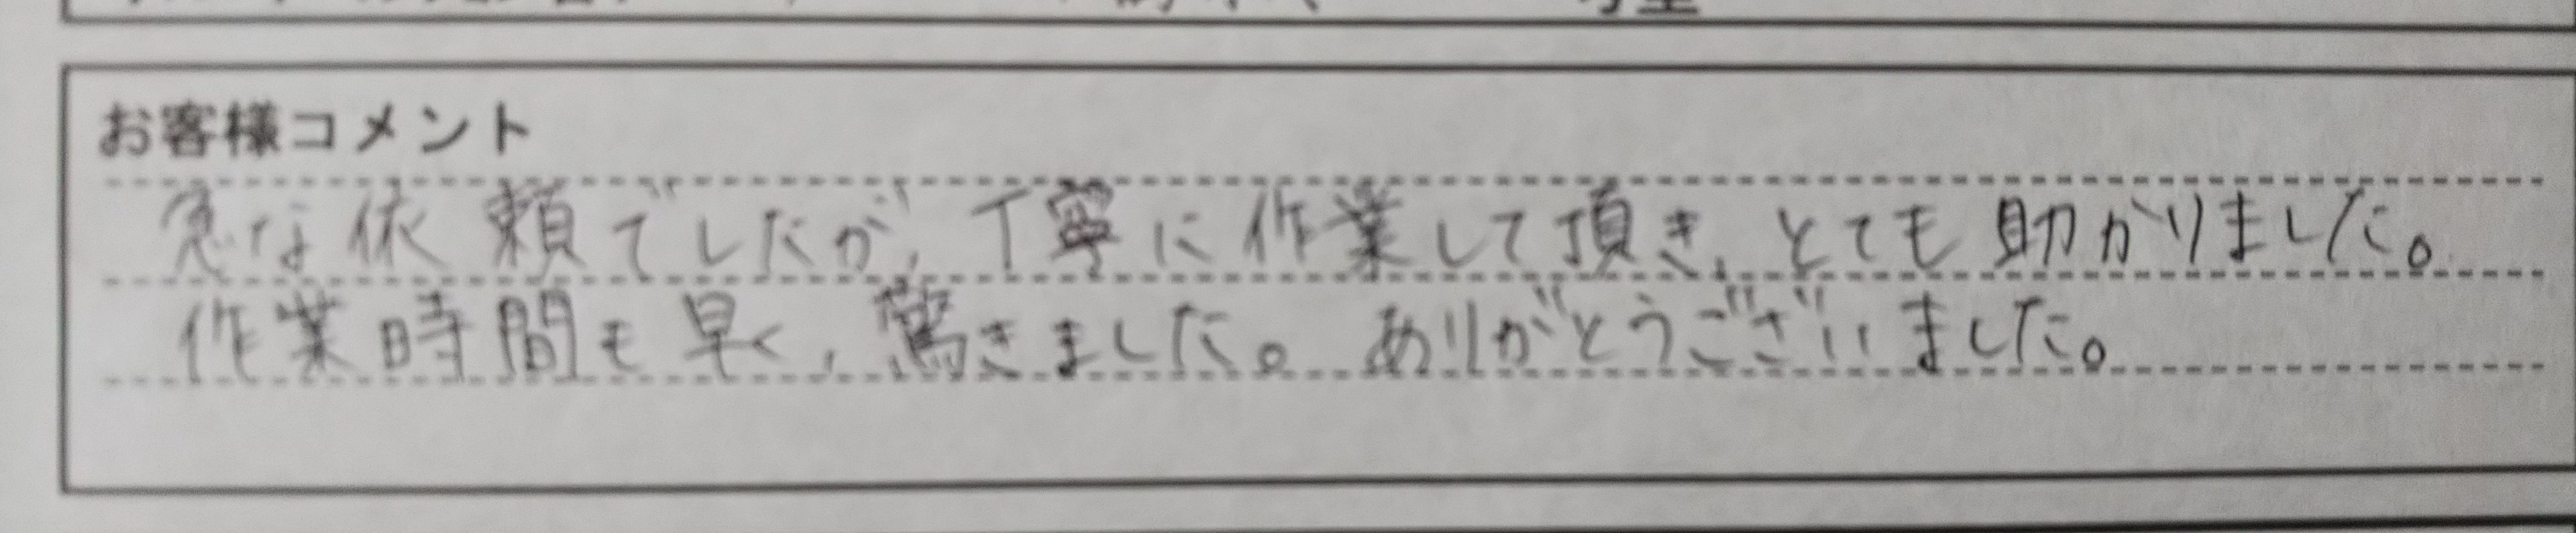 お客様コメント
急な依頼でしたが、丁寧に作業して頂き、とても助かりました。
作業時間も早く、驚きました。ありがとうございました。